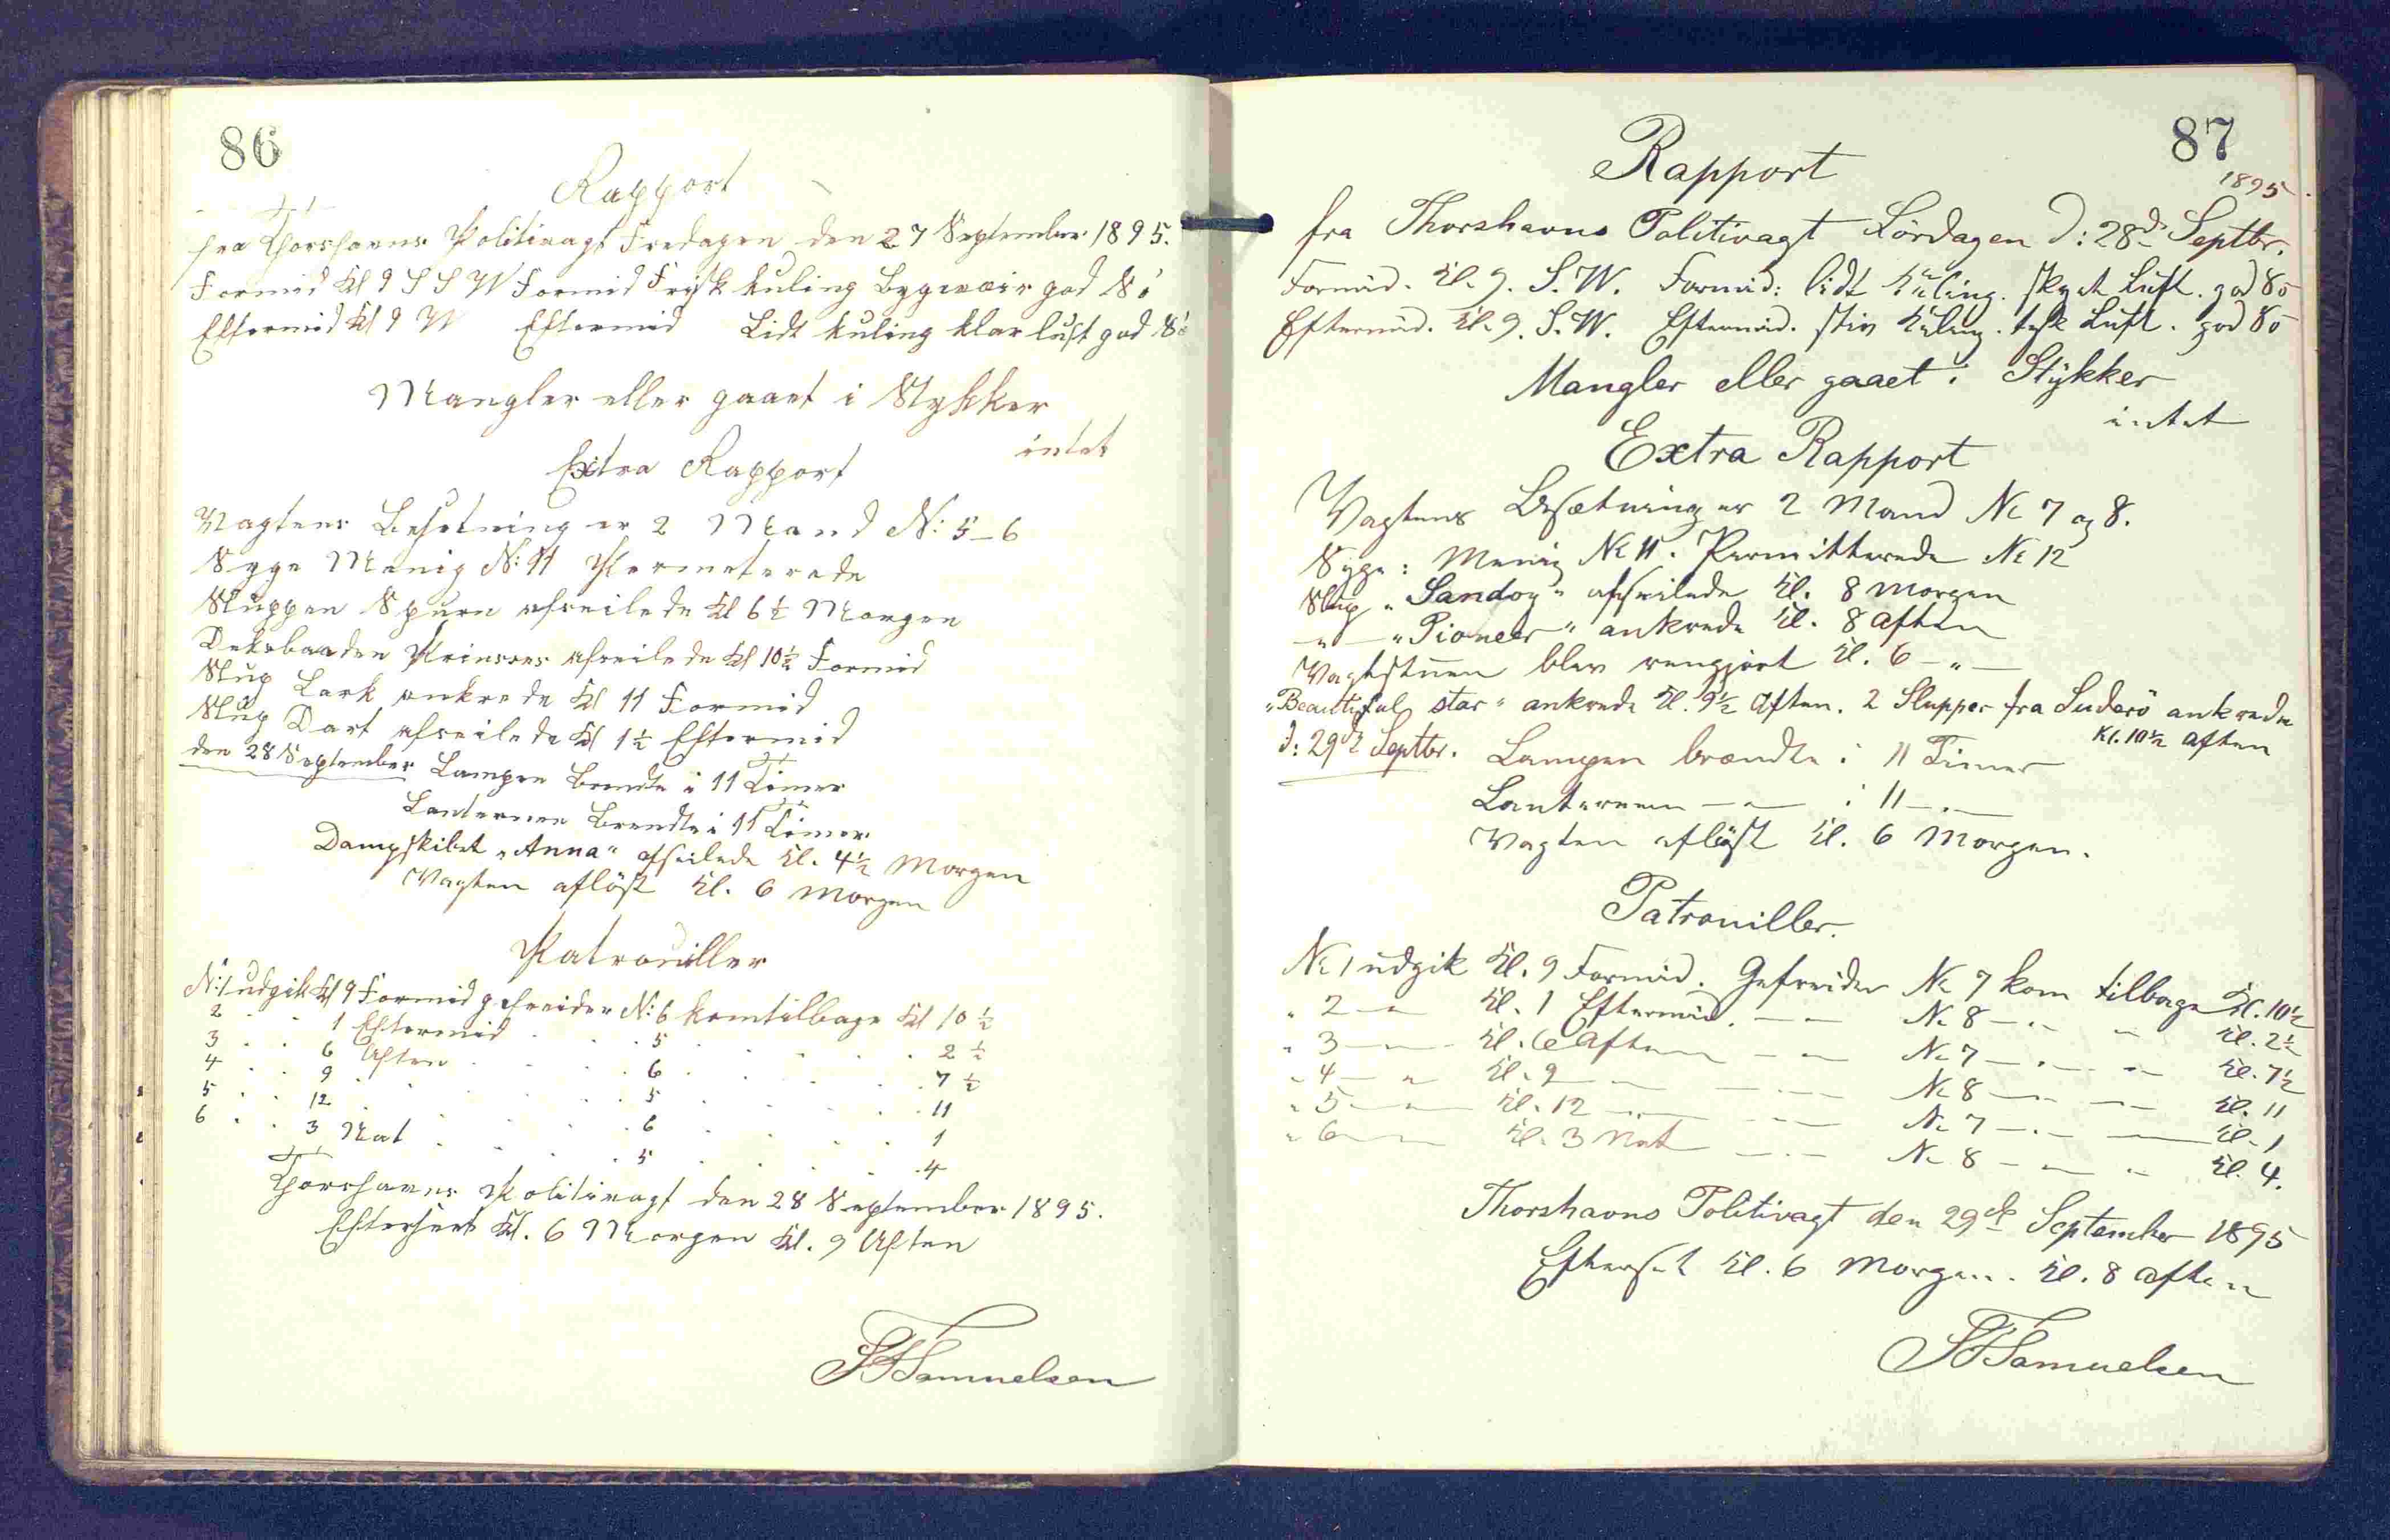 86
Rapport
fra Thorshavns Politivagt Fredagen den 27 September 1895.
Formid Kl 9 S S W Formid Frisk kuling Bygevæir god Sö
Eftermid Kl 9 W Eftermid Lidt kuling klar luft god Sö
Mangler eller gaaet i Stykker
intet
Extra Rapport
Vagtens Besetning er 2 Mand N: 5-6
Syge Menig N: 11 Permeterede
Sluppen Spurn afseilede Kl 6½ Morgen
Deksbaaden Prinsses afseilede Kl 10½ Formid
Slup Lark ankrede Kl 11 Formid
Slup Dart afseilede Kl 1½ Eftermid
den 28 September Lampen Brendte i 11 Timer
Lanternen Brendte i 11 Timer
Dampskibet „Anna“ afseilede Kl. 4½ Morgen
Vagten aflöst Kl. 6 Morgen
Patrouiller
N: 1 udgik Kl 9 Formid gefreider N: 6 kom tilbage Kl 10½
2 . . 1 Eftermid . . . 5 . . . . 2½
3 . . 6 Aften . . . 6 . . . . 7½
4 . . 9 . . . . 5 . . . . 11
5 . . 12 . . . . 6 . . . . 1
6 . . 3 Nat . . . . 5 . . . . 4
Thorshavns Politivagt den 28 September 1895.
Efterseet Kl. 6 Morgen Kl. 9 Aften
Samuelsen
87
1895
Rapport
fra Thorshavns Politivagt Lördagen D: 28de Septbr.
Formid. Kl. 9. S.W. Formid: lidt Kuling. skyet Luft. god Sö
Eftermid. Kl. 9. S.W. Eftermid. stiv Kuling. tyk Luft. god Sö
Mangler eller gaaet i Stykker
intet
Extra Rapport
Vagtens Besætning er 2 Mand No 7 og 8.
Syge: Menig No 11. Permitterede No 12
Slup „Sandoy“ afseilede Kl. 8 Morgen
—„— „Pioneer“ ankrede Kl. 8 Aften
Vagtstuen blev rengjort Kl. 6 —„—
„Beautiful star“ ankrede Kl. 9½ Aften. 2 Slupper fra Suderö ankrede
Kl. 10½ Aften
D: 29de Septbr. Lampen brændte i 11 Timer
Lanternen —„— i 11 —„—
Vagten aflöst Kl. 6 Morgen.
Patrouiller.
No 1 udgik Kl. 9 Formid. Gefreider No 7 kom tilbage Kl. 10½
„ 2 —„ Kl. 1 Eftermid. —„— No 8 —„— „— Kl. 2½
„ 3 —„— Kl. 6 Aften —„— No 7 —„— „— Kl. 7½
„ 4 —„ Kl. 9 —„— —„— No 8 —„— „— Kl. 11
„ 5 —„— Kl. 12 —„— —„— No 7 —„— „— Kl. 1
„ 6 —„— Kl. 3 Nat —„— No 8 —„— „— Kl. 4.
Thorshavns Politivagt den 29de September 1895
Efterset Kl. 6 Morgen. Kl. 8 Aften
Samuelsen